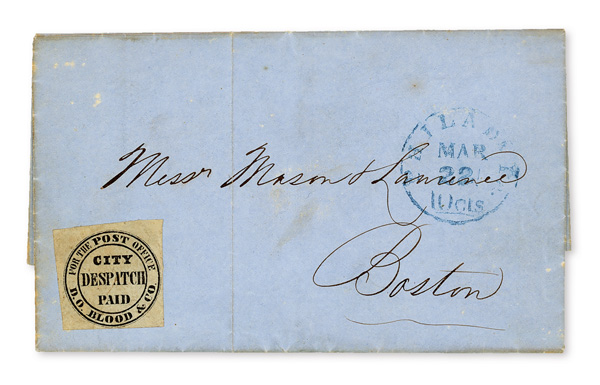 PHILADA Pa
MAR
22
10cts
Messrs Mason & Lawrence
Boston
FOR THE POST OFFICE
CITY
DESPATCH
PAID
D.O. BLOOD & CO.